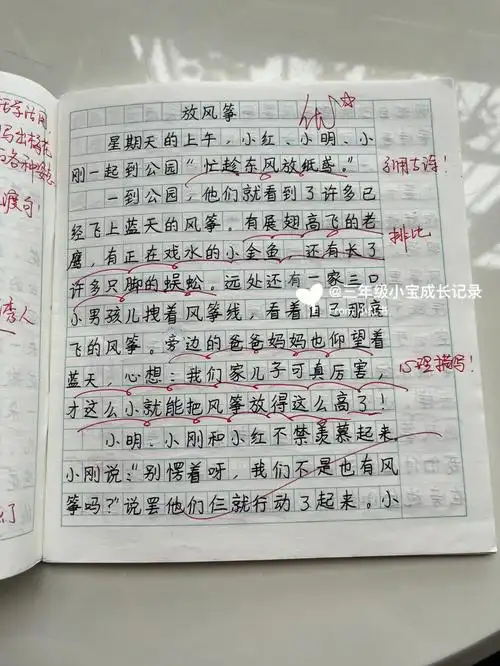 放风筝
优
星期天的上午，小红、小明、小
刚一起到公园“忙趁东风放纸鸢。”
引用古诗！
一到公园，他们就看到了许多已
经飞上蓝天的风筝。有展翅高飞的老
鹰，有正在戏水的小金鱼，还有长了
排比
许多只脚的蜈蚣。远处还有一家三口
@三年级小宝成长记录
小男孩儿拽着风筝线，看着自
飞的风筝。旁边的爸爸妈妈也仰望着
蓝天，心想：我们家儿子可真厉害，
心理描写！
才这么小就能把风筝放得这么高了！
小明、小刚和小红不禁羡慕起来。
小刚说：“别愣着呀，我们不是也有风
筝吗？”说罢他们仨就行动了起来。小